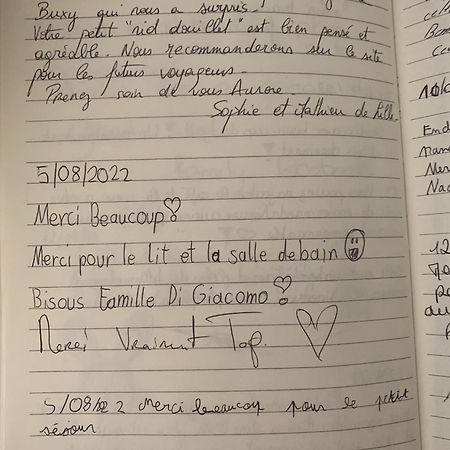 Buxy qui nous a surpris !
Votre petit "nid douillet" est bien pensé et
agréable. Nous recommanderons sur le site
pour les futurs voyageurs.
Prenez soin de vous Aurore.
Sophie et Mathieu de Lille.
5/08/2022
Merci Beaucoup
Merci pour le lit et la salle de bain
Bisous Famille Di Giacomo
Merci Vraiment Top.
5/08/22 Merci beaucoup pour le petit
séjour
10/0
12